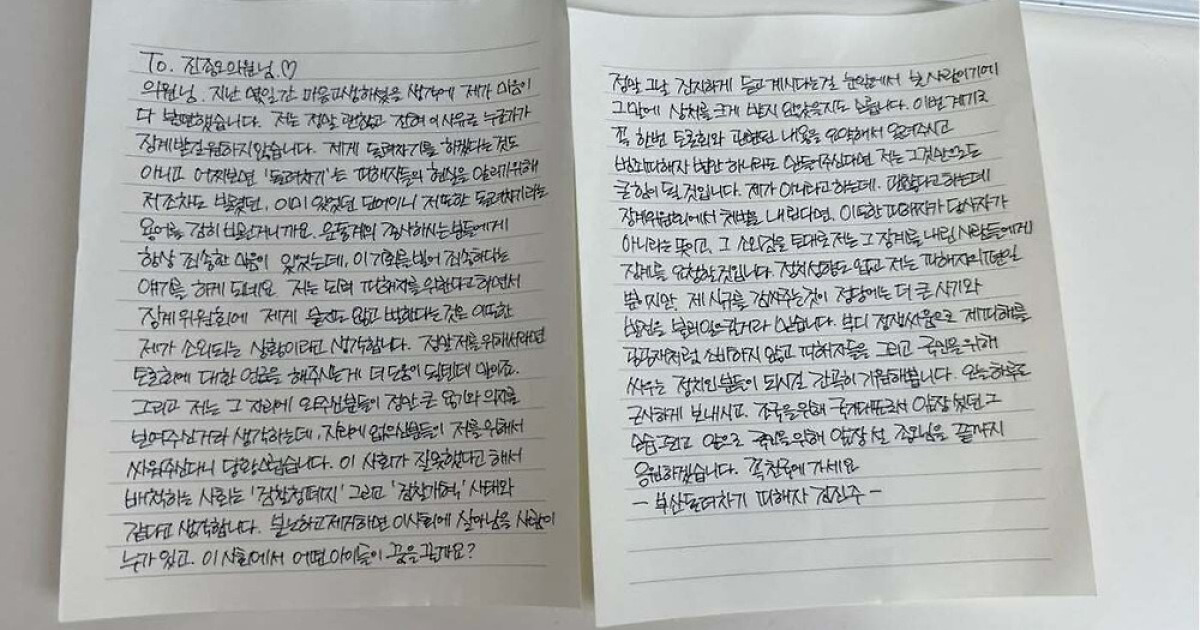 To. 진종오의원님.♡
의원님. 지난 몇일간 마음고생하셨을 생각에 제가 마음이
다 불편했습니다. 저는 정말 괜찮고 전혀 이 사유로 누군가가
징계받길 원하지 않습니다. 제게 돌려차기를 하겠다는 것도
아니고 어찌보면 '돌려차기'는 피해자들의 현실을 알리기위해
저조차도 빌렸던, 이미 있었던 단어이니 저또한 돌려차기라는
용어를 감히 빌린거니까요. 운동계의 종사하시는 분들에게
항상 죄송한 마음이 있었는데, 이 기회를 빌어 죄송하다는
얘기를 하게 되네요. 저는 되려 피해자를 위한다고 하면서
징계위원회에 제게 묻지도 않고 벌한다는 것은 이또한
제가 소외되는 상황이라고 생각합니다. 정말 저를 위해서라면
토론회에 대한 언급을 해주시는게 더 도움이 될텐데 말이죠.
그리고 저는 그 자리에 와주신분들이 정말 큰 용기와 의지를
보여주신거라 생각하는데, 자리에 없으신분들이 저를 위해서
싸워주신다니 당황스럽습니다. 이 사회가 잘못했다고 해서
배척하는 사회는 '검찰청폐지' 그리고 '검찰개혁' 사태와
같다고 생각합니다. 비난하고 제지하면 이사회에 살아남을 사람이
누가 있고. 이 사회에서 어떤 아이들이 꿈을 꿀까요?
정말 그날 진지하게 듣고 계시다는걸 눈앞에서 본 사람이기에
그말에 상처를 크게 받지 않았을지도 모릅니다. 이번 계기로
꼭 한번 토론회와 관련된 내용을 요약해서 올려주시고
범죄피해자 법안 하나라도 만들어주신다면 저는 그것만으로도
큰 힘이 될 것입니다. 제가 아니라고 하는데. 괜찮다고 하는데
징계위원회에서 처벌을 내린다면, 이또한 피해자가 당사자가
아니라는 뜻이고, 그 소외감을 토대로 저는 그 징계를 내린 사람들에게
징계를 요청할 것입니다. 정치성향도 없고 저는 피해자의 편일
뿐이지만, 제 식구를 감싸주는것이 정당에는 더 큰 사기와
발전을 불러일으킬거라 믿습니다. 부디 정쟁싸움으로 제 피해를
땔감처럼 소비하지 않고 피해자들을 그리고 국민을 위해
싸우는 정치인분들이 되시길 간곡히 기원해봅니다. 오늘 하루도
근사하게 보내시고. 조국을 위해 국가대표로서 앞장 섰던 그
모습 그리고 앞으로 국민을 위해 앞장 설 종오님을 끝까지
응원하겠습니다. 꼭 천국에 가세요
- 부산돌려차기 피해자 김진주 -